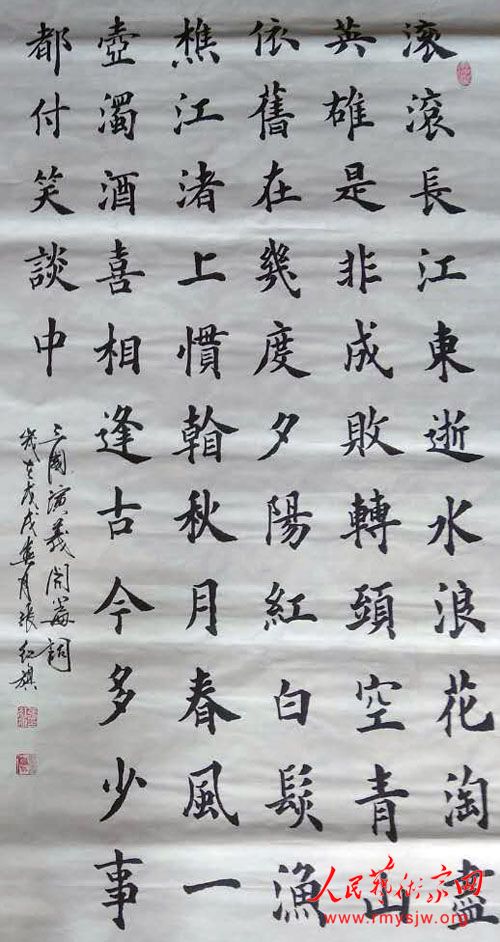 滚滚長江東逝水浪花淘盡
英雄是非成敗轉頭空青山
依舊在幾度夕陽紅白髮漁
樵江渚上慣翰秋月春風一
壺濁酒喜相逢古今多少事
都付笑談中
三國演義開篇詞
歲在戊戌月張紅旗
人民藝術家网
www.rmysjw.org